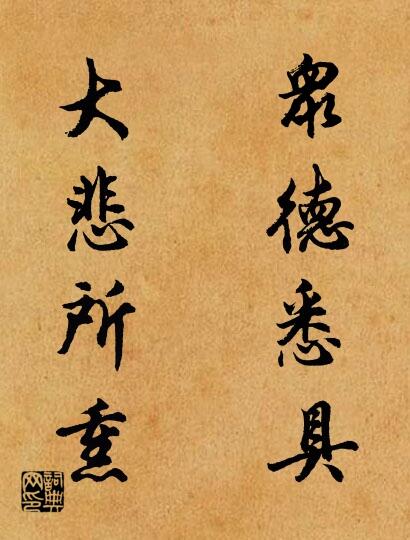 眾德悉具
大悲所熏
詞典网印